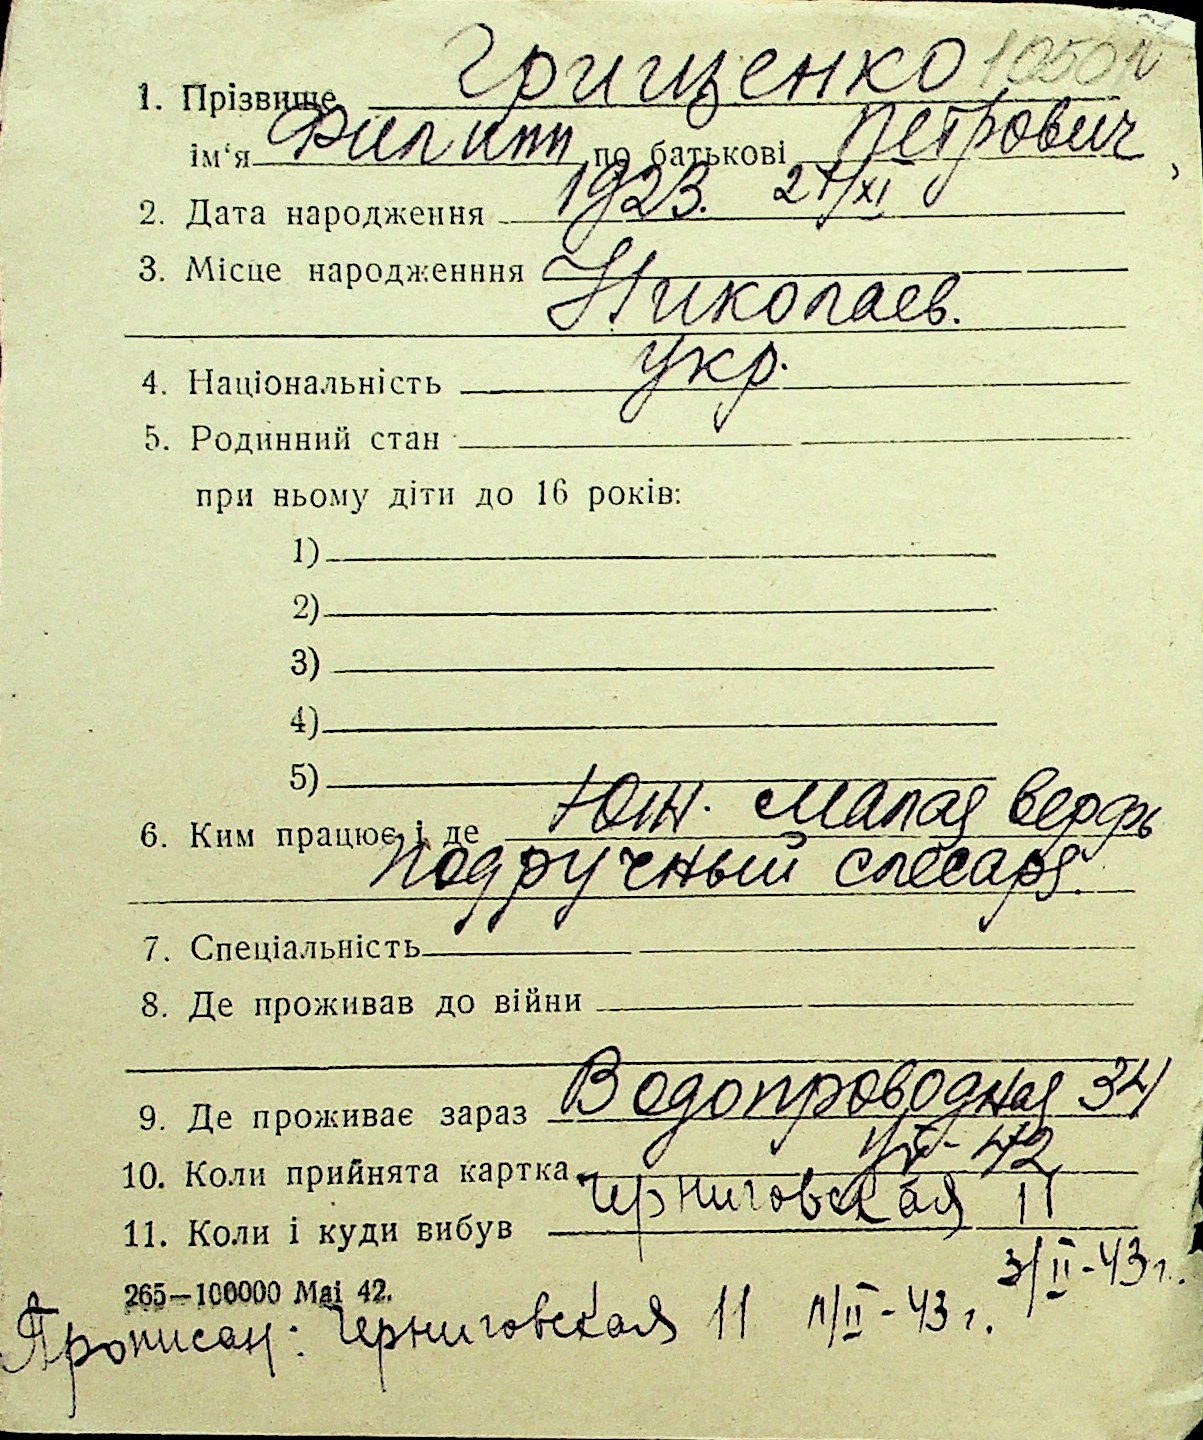 1. Прізвище Грищенко
ім‘я Филипп по батькові Петрович
2. Дата народження 1923.
3. Місце народженння Николаев.
4. Національність укр.
5. Родинний стан
при ньому діти до 16 років:
1)
2)
3)
4)
5)
6. Ким працює і де Юж. Малая верфь
подручный слесаря.
7. Спеціальність
8. Де проживав до війни
9. Де проживає зараз Водопроводная 34
10. Коли прийнята картка
11. Коли і куди вибув Черниговская 11
3/II-43 г.
265—100000 Mai 42.
Прописан: Черниговская 11 11/II-43 г.